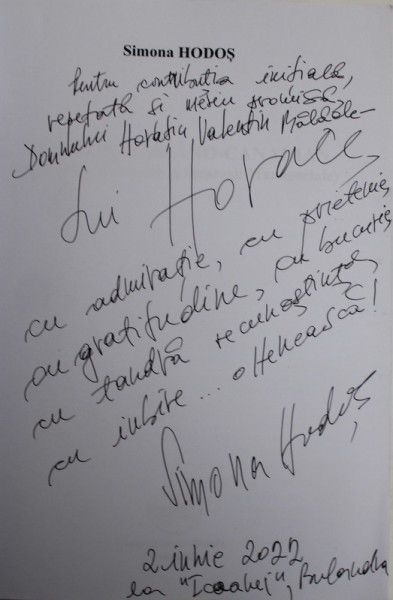 Simona HODOȘ
Pentru contribuția inițială,
repetată și mereu promisă
Domnului Horațiu Valentin Mălăele
Lui Horace,
cu admirație, cu prietenie
cu gratitudine, cu bucurie
cu tandră recunoștință,
cu iubire ... oltenească!
Simona Hodoș
2 iunie 2022
la "Icoanei", Bulandra